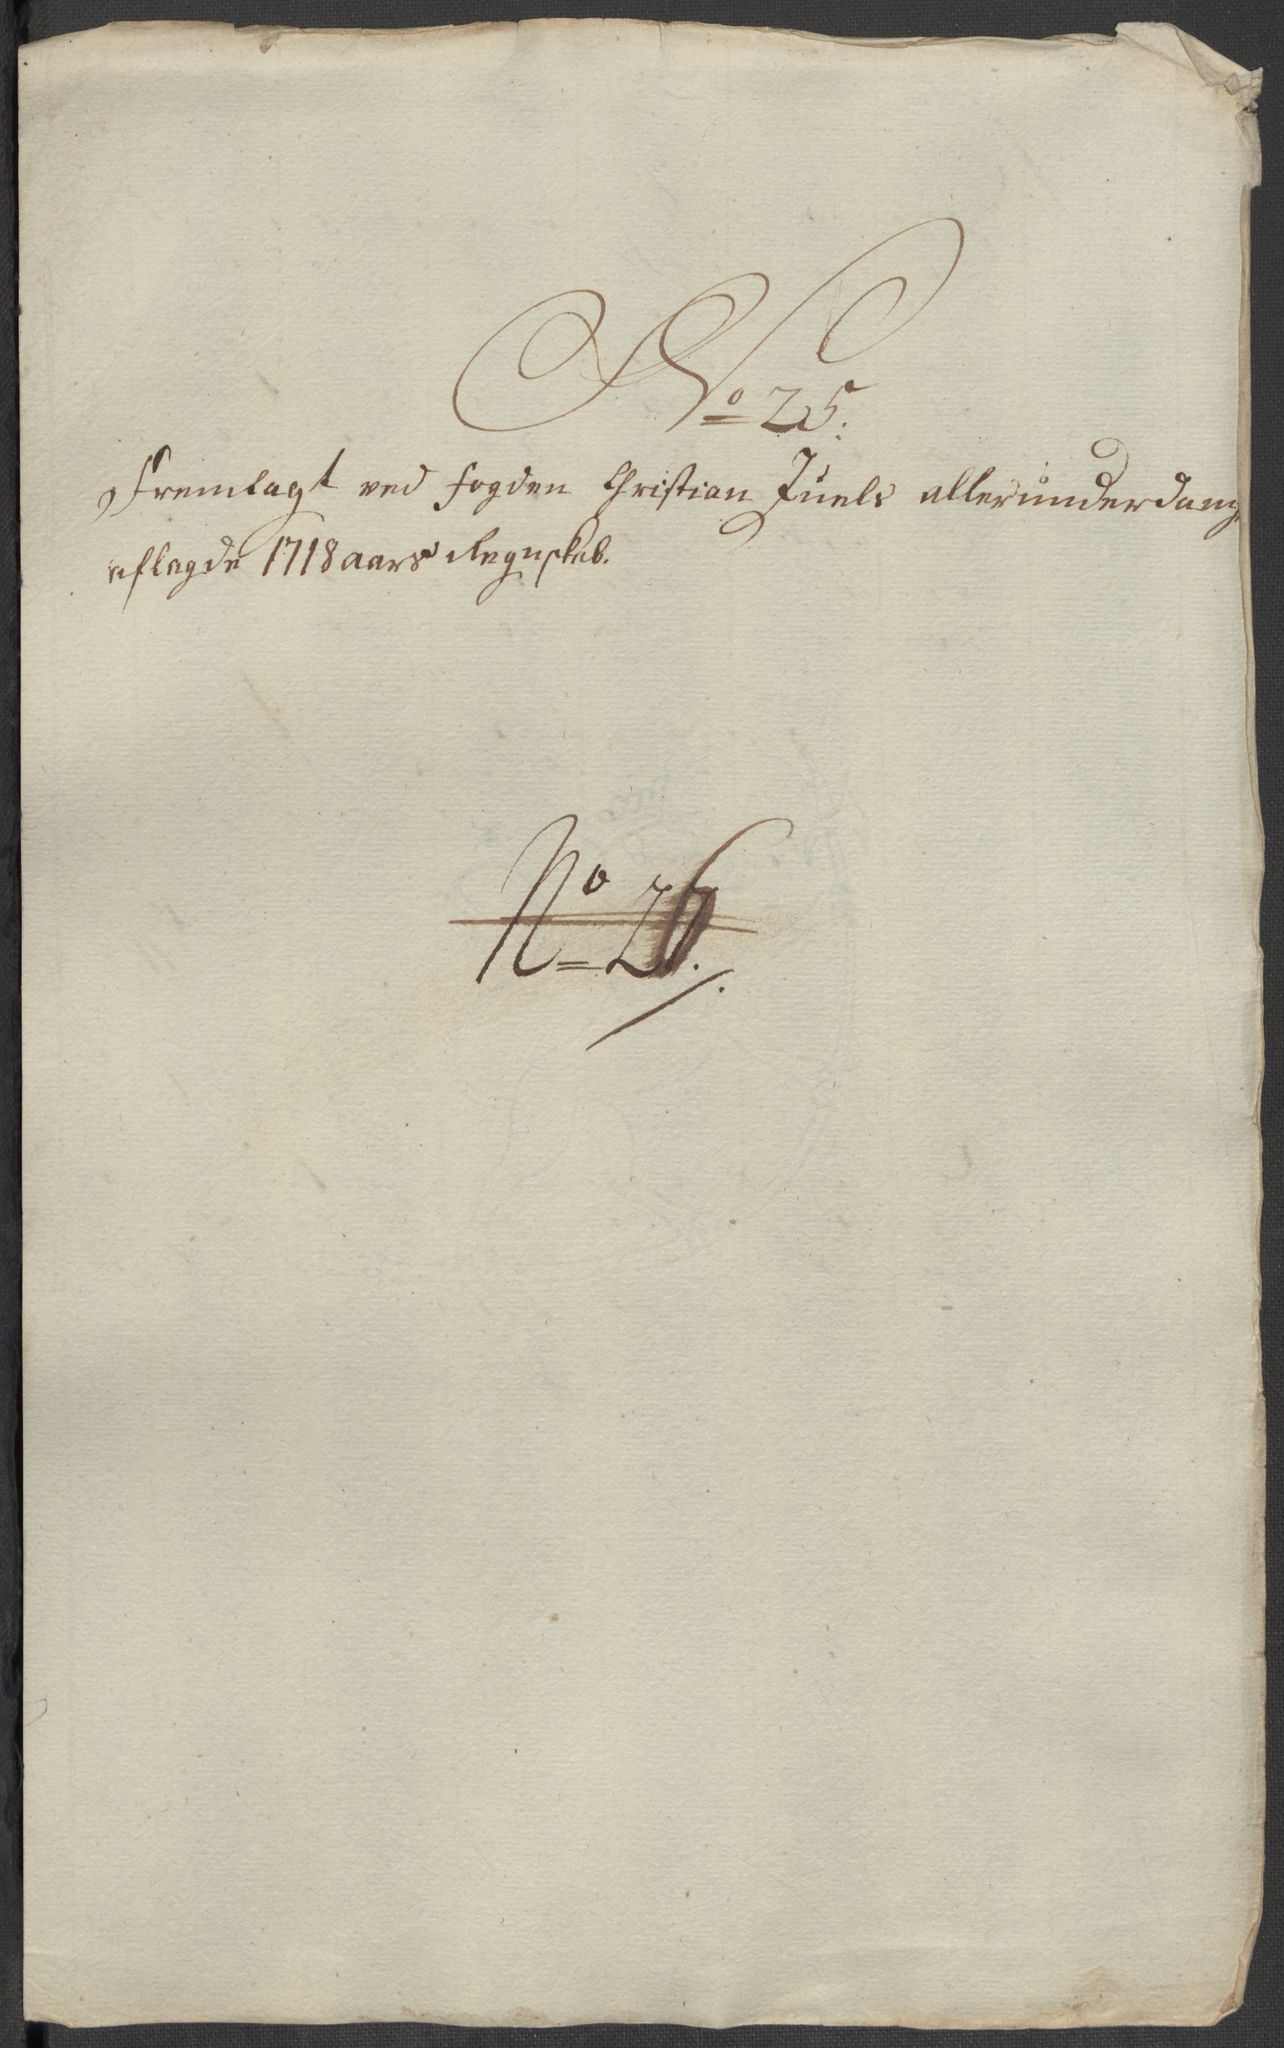 No 25.
Fremlagt ved fogden Christian Juels allerunderdanig
aflagde 1718 aars Regnskab.
No 26.